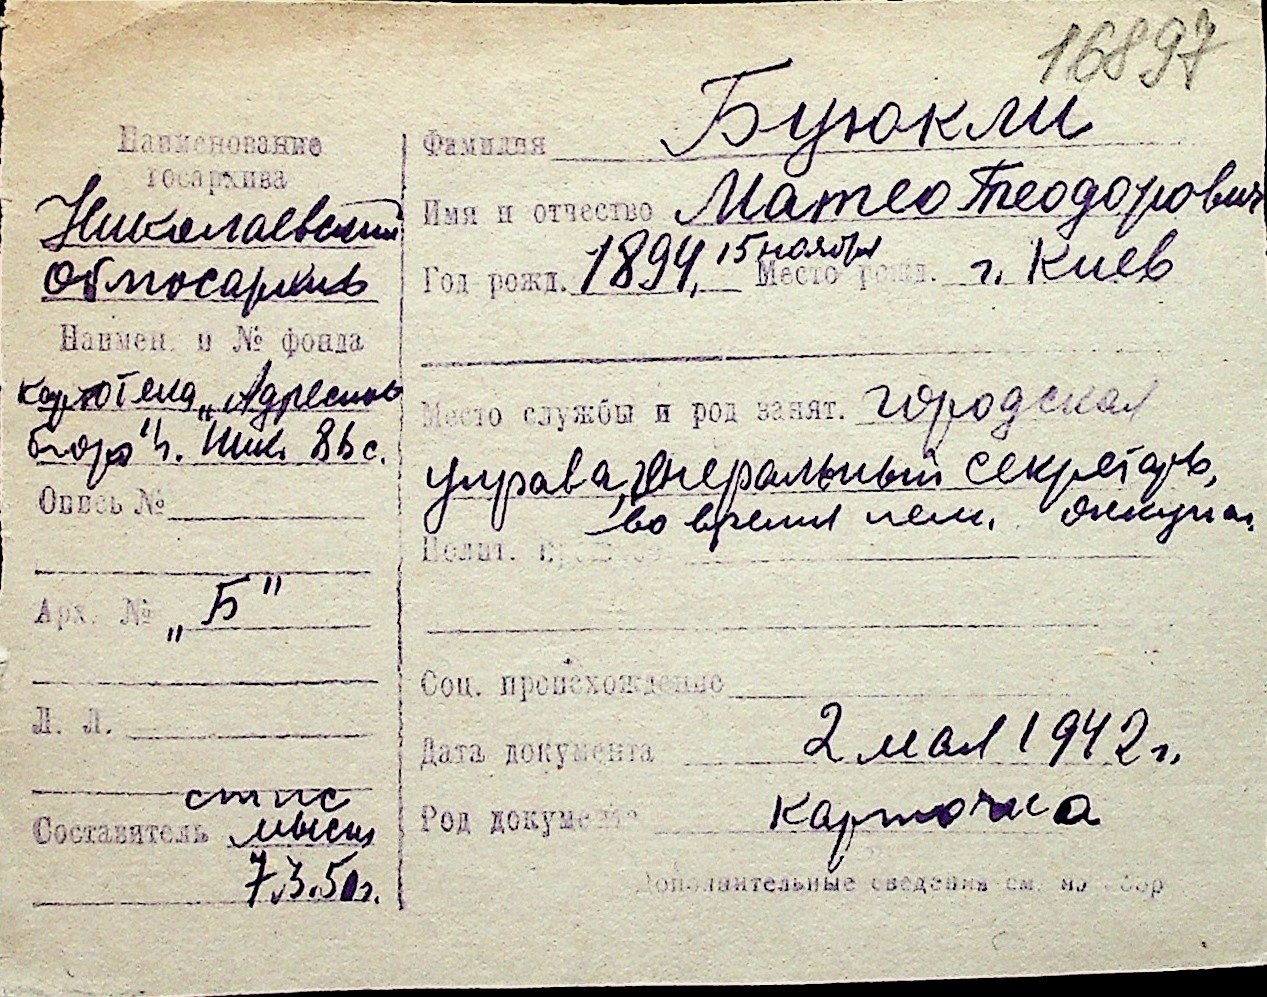 16897
Наименование
госархива
Николаевский
Облгосархив
Наимен. и № фонда
картотека „Адресное
бюро" г. Ник.
Опись №
Арх. № „Б"
Л. Л.
Составитель
7.3.50г.
Фамилия Буюкли
Имя и отчество Матео Теодорович
Год рожд. 1894, 15 ноября Место рожд. г. Киев
Место службы и род занят. городская
управа, генеральный секретарь,
во время нем. оккупац.
Полит.
Соц. происхождение
Дата документа 2 мая 1942 г.
Род документа карточка
Дополнительные сведения см. на обор